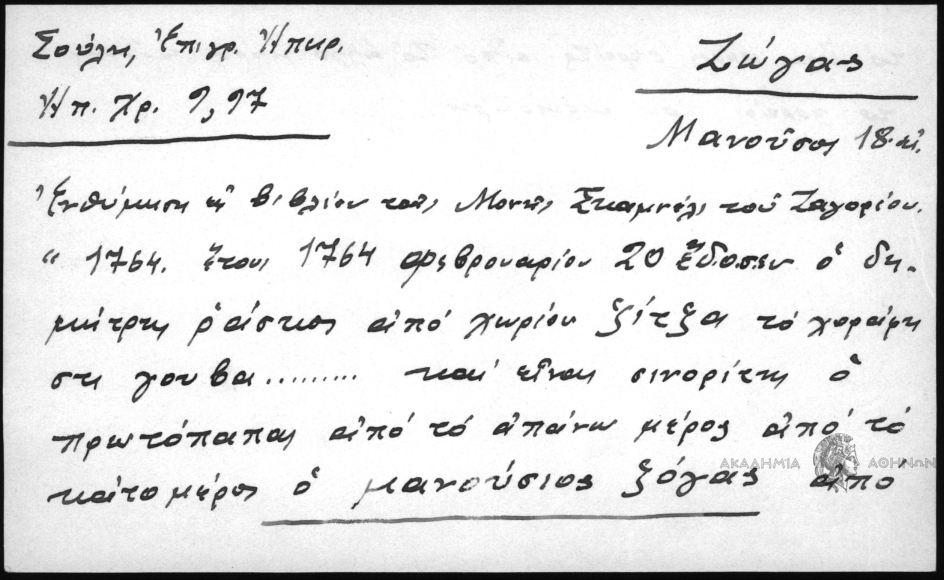 Σούλη, Ἐπιγρ. Ἠπειρ.
Ἠπ. Χρ. 9, 97
Ζώγας
Μανοῦσος 18. αἰ.
Ἐνθύμιση εἰς βιβλίον τῆς Μονῆς Στκαμνέλι τοῦ Ζαγορίου.
“ 1764. ἔτους 1764 φεβρουαρίου 20 ἔδοσεν ὁ δη-
μίτρης ῥάϊστης ἀπό χωρίον ζίτζα τό χοράφι
στη γουβα......... καί εἶναι σινορίτης ὁ
πρωτόπαπας ἀπό τό ἀπάνω μέρος ἀπό τό
κάτο μέρος ὁ μανούσιος ζόγας ἀπό
ΑΚΑΔΗΜΙΑ ΑΘΗΝΩΝ